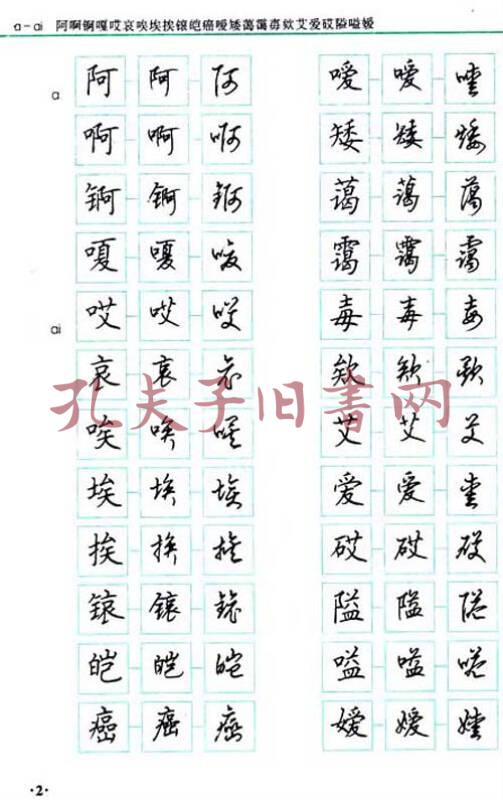 a-ai 阿啊锕嗄哎哀唉埃挨锿皑癌嗳矮蔼霭毐欸艾爱砹隘嗌嫒
a
阿 阿 阿
啊 啊 啊
锕 锕 锕
嗄 嗄 嗄
ai
哎 哎 哎
哀 哀 哀
唉 唉 唉
埃 埃 埃
挨 挨 挨
锿 锿 锿
皑 皑 皑
癌 癌 癌
嗳 嗳 嗳
矮 矮 矮
蔼 蔼 蔼
霭 霭 霭
毐 毐 毐
欸 欸 欸
艾 艾 艾
爱 爱 爱
砹 砹 砹
隘 隘 隘
嗌 嗌 嗌
嫒 嫒 嫒
孔夫子旧书网
·2·